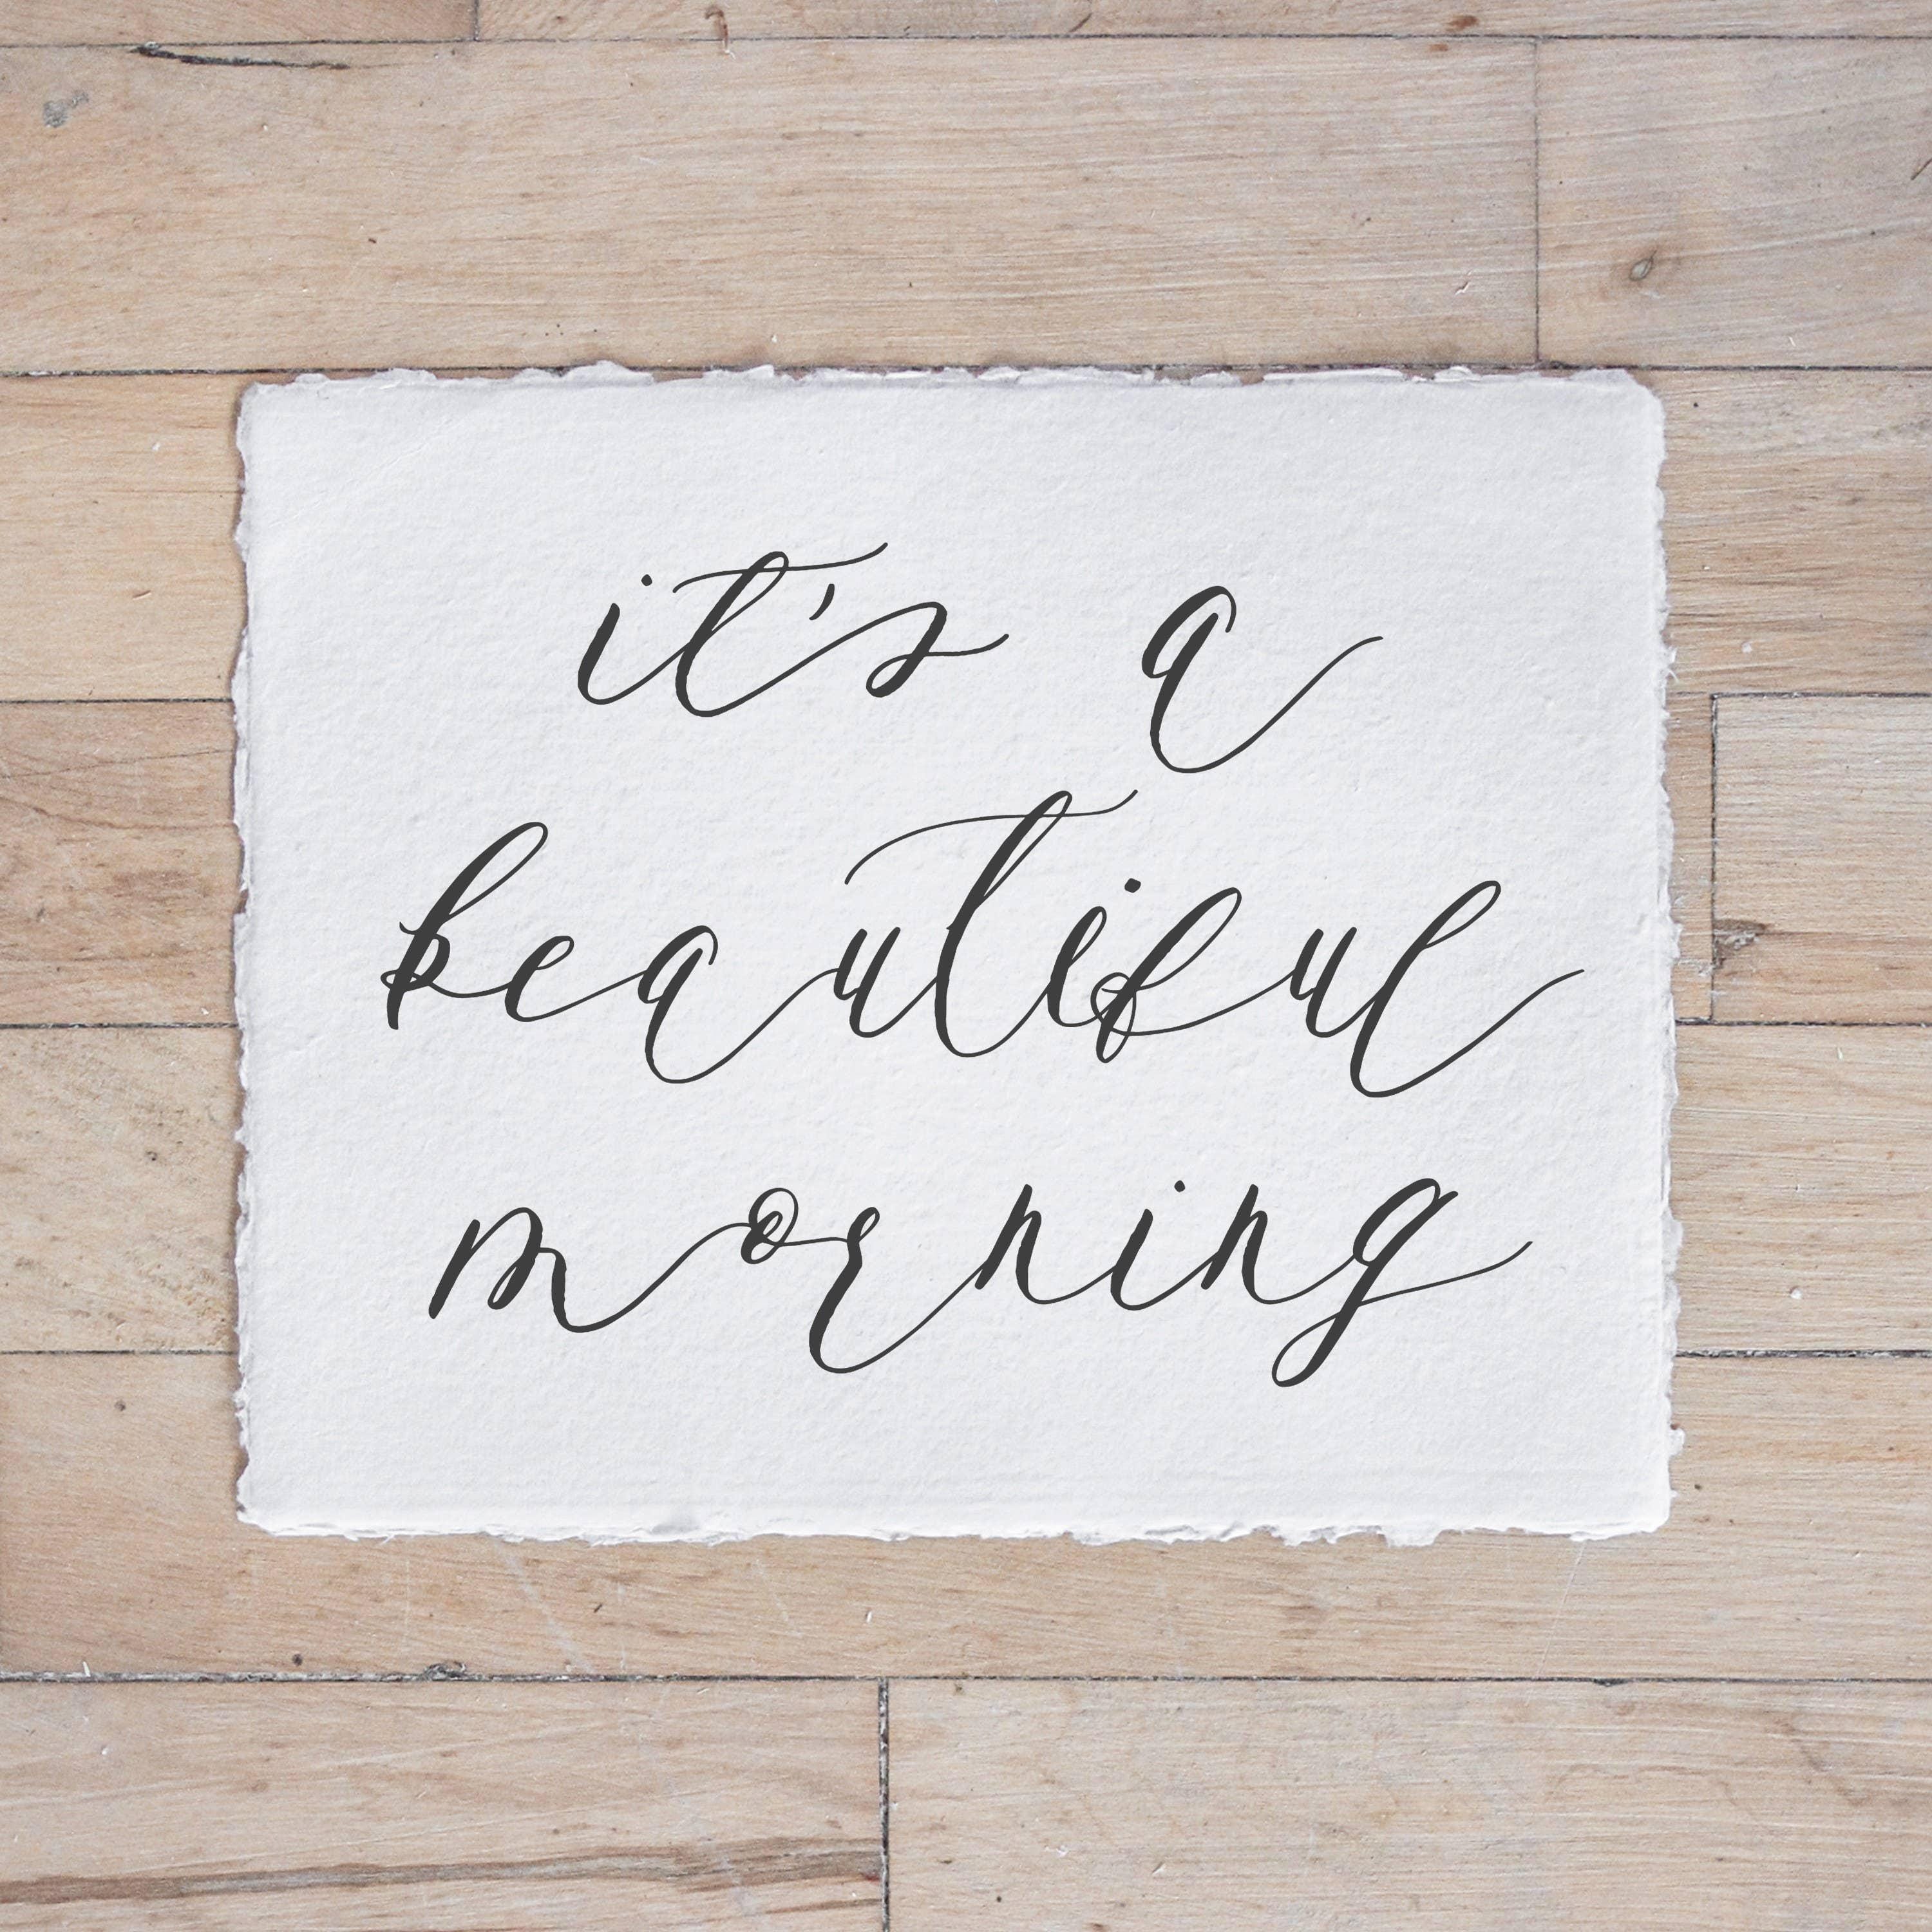 it's a
beautiful
morning